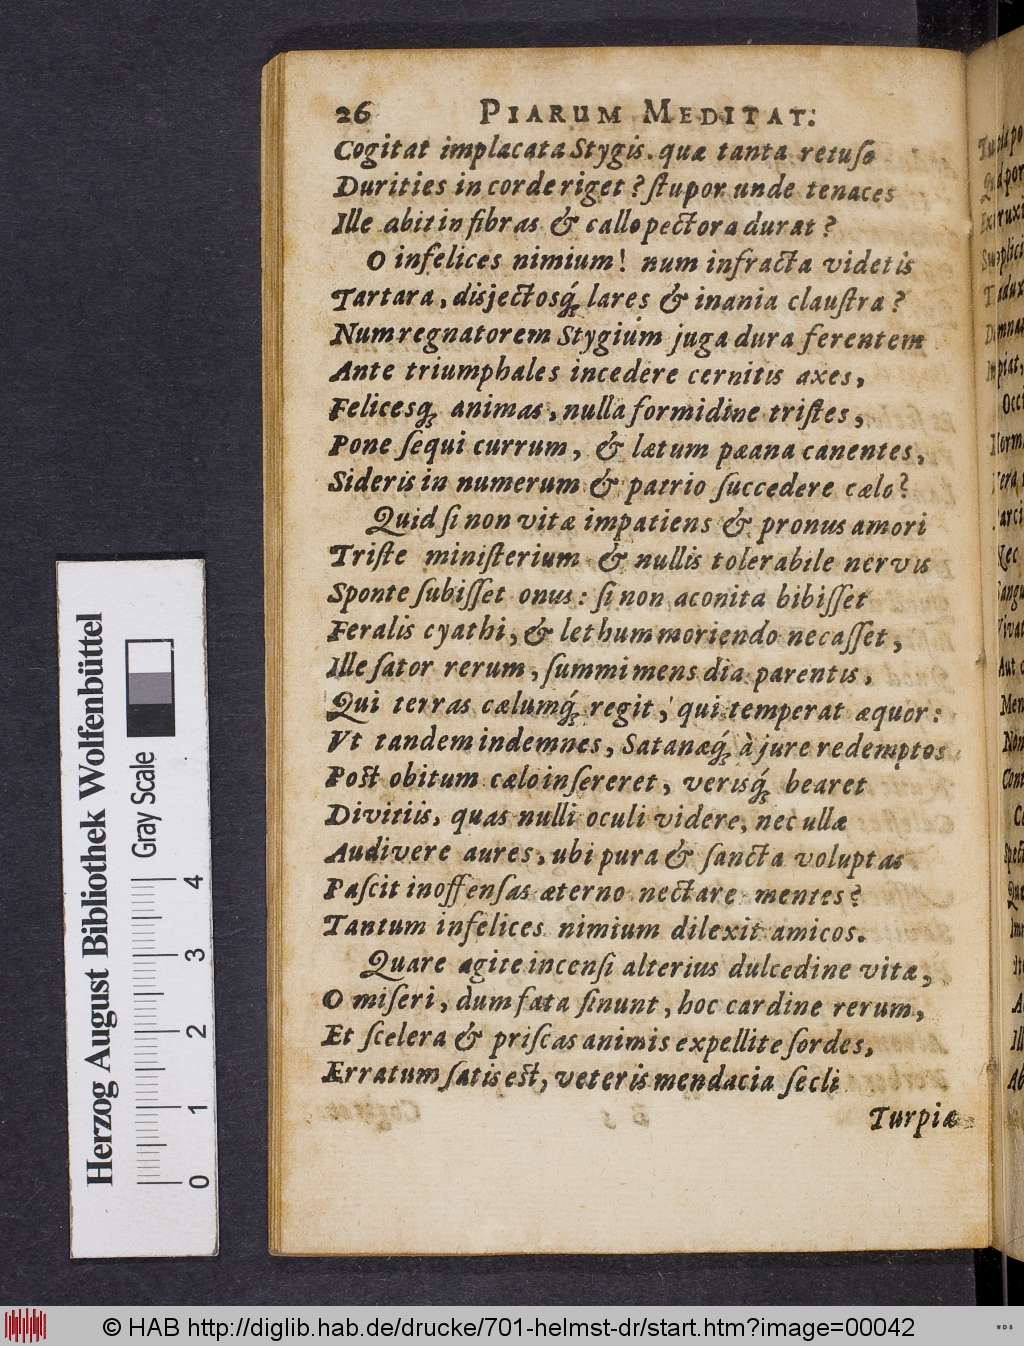 26 PIARUM MEDITAT:
Cogitat implacata Stygis. quæ tanta retuso
Durities in corde riget? ſtupor unde tenaces
Ille abit in fibras & callo pectora durat?
O infelices nimium! num infracta videtis
Tartara, disjectosq́; lares & inania clauſtra?
Num regnatorem Stygium juga dura ferentem
Ante triumphales incedere cernitis axes,
Felicesq; animas, nulla formidine triſtes,
Pone ſequi currum, & lætum pæana canentes,
Sideris in numerum & patrio ſuccedere cælo?
Quid ſi non vitæ impatiens & pronus amori
Triſte miniſterium & nullis tolerabile nervis
Sponte ſubiſſet onus: ſi non aconita bibiſſet
Feralis cyathi, & lethum moriendo necaſſet,
Ille ſator rerum, ſummi mens dia parentis,
Qui terras cælumq́; regit, qui temperat æquor:
Vt tandem indemnes, Satanæq́; à jure redemptos
Poſt obitum cælo inſereret, verisq́; bearet
Divitiis, quas nulli oculi videre, nec ullæ
Audivere aures, ubi pura & ſancta voluptas
Paſcit inoffenſas æterno nectare mentes?
Tantum infelices nimium dilexit amicos.
Quare agite incenſi alterius dulcedine vitæ,
O miſeri, dum fata ſinunt, hoc cardine rerum,
Et ſcelera & priſcas animis expellite ſordes,
Erratum ſatis est, veteris mendacia ſecli
Turpiæ
Herzog August Bibliothek Wolfenbüttel
Gray Scale
0 1 2 3 4
© HAB http://diglib.hab.de/drucke/701-helmst-dr/start.htm?image=00042